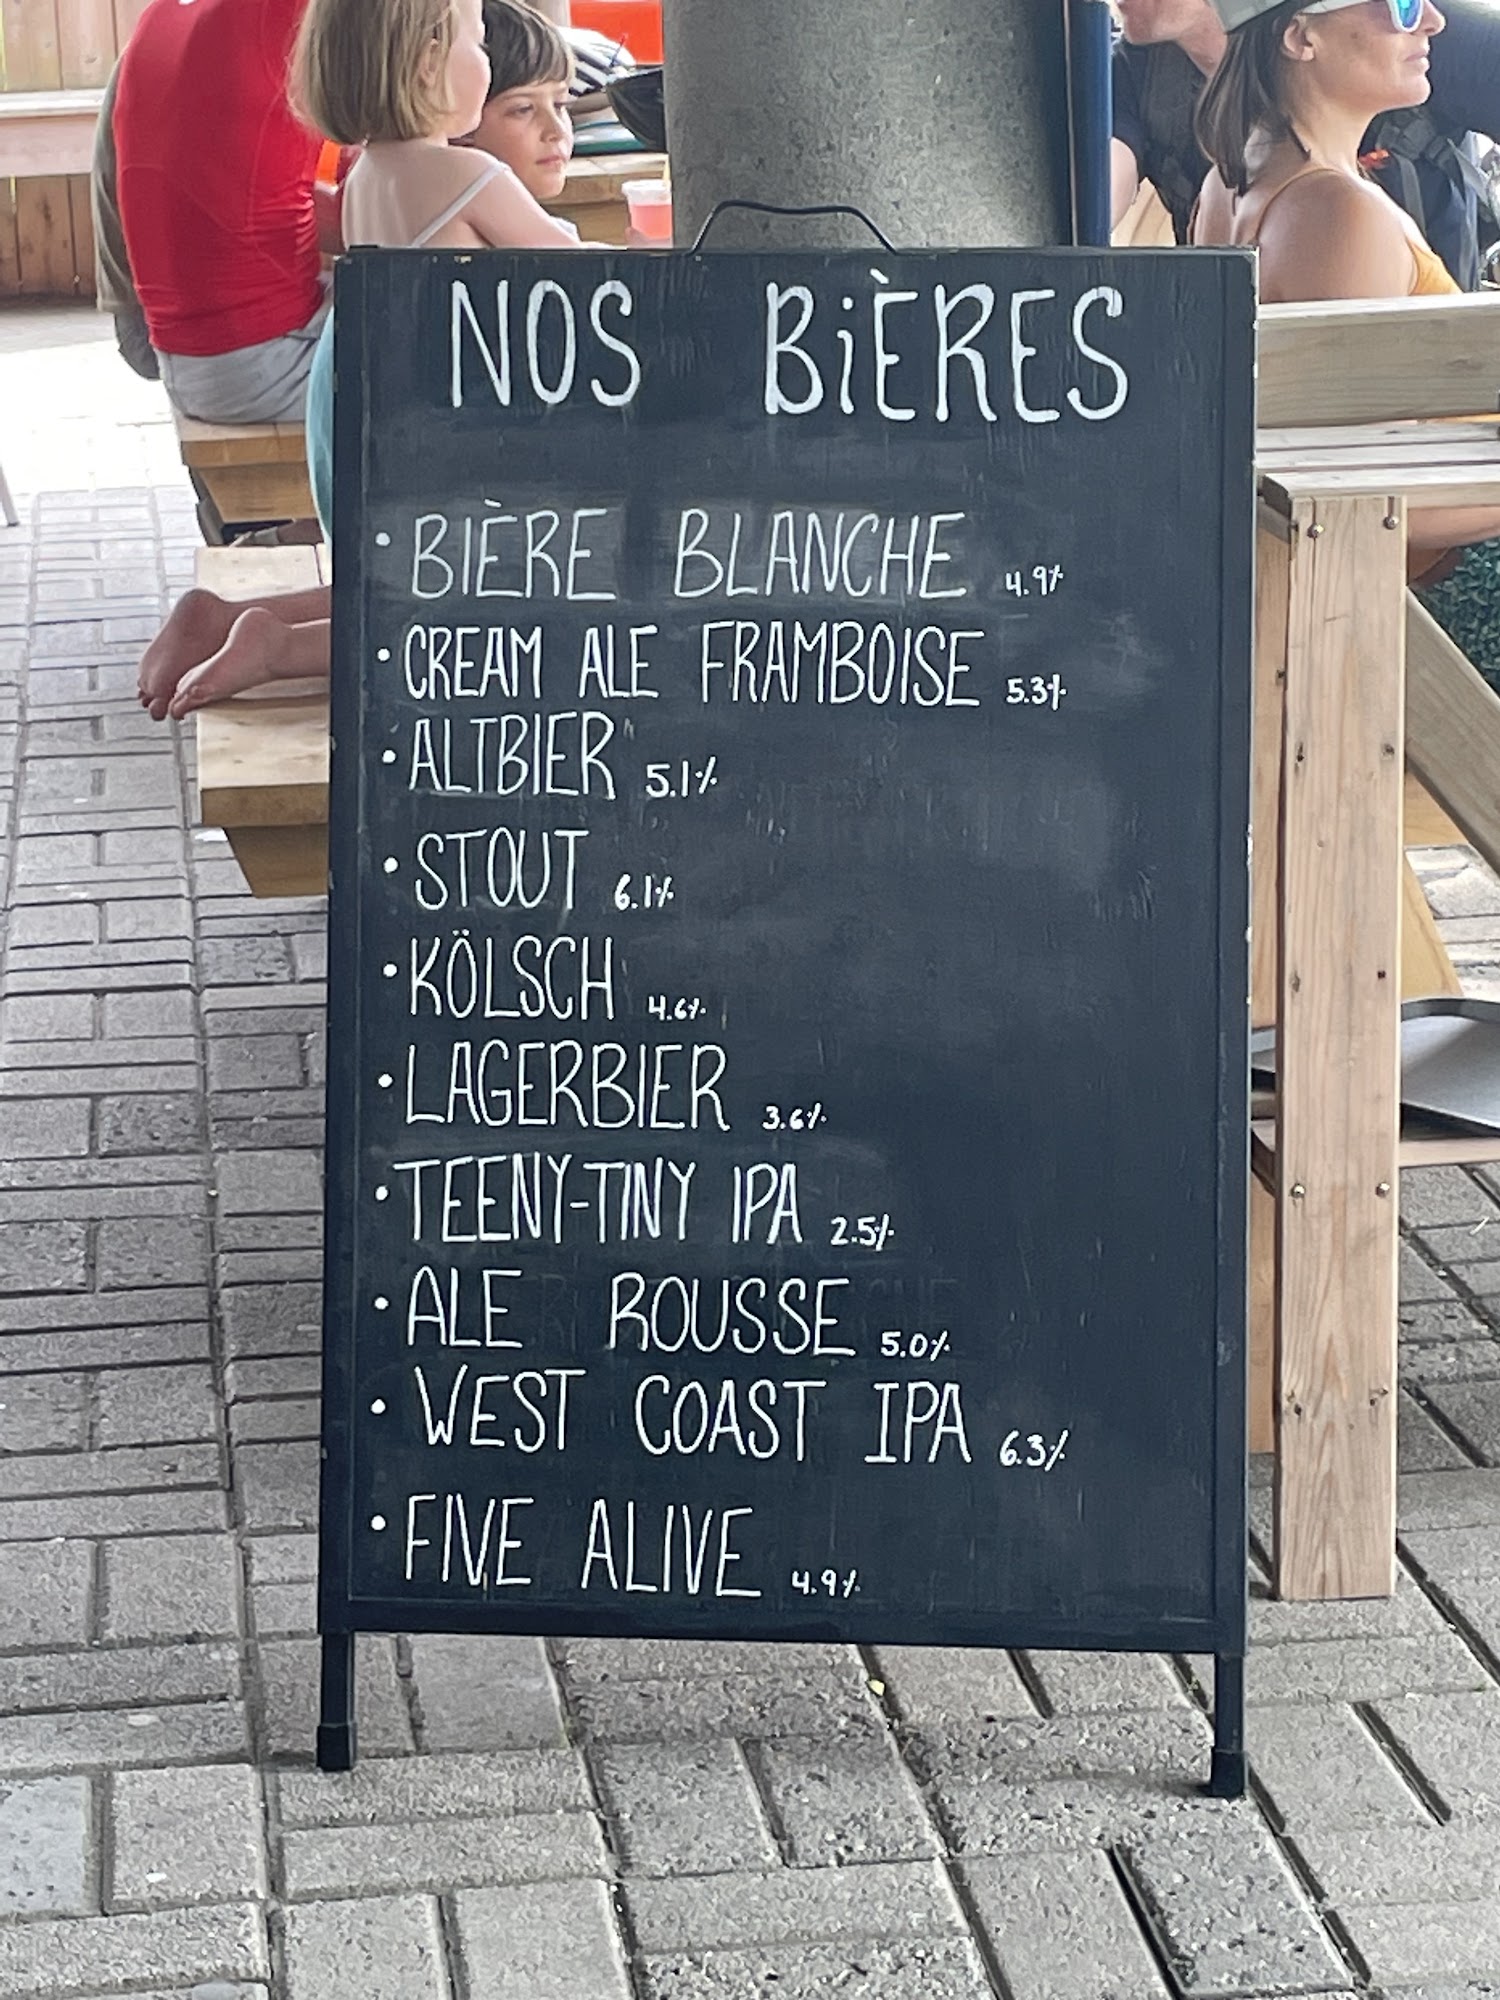 NOS BiÈRES
• BIÈRE BLANCHE 4.9%
• CREAM ALE FRAMBOISE 5.3%
• ALTBIER 5.1%
• STOUT 6.1%
• KÖLSCH 4.6%
• LAGERBIER 3.6%
• TEENY-TINY IPA 2.5%
• ALE ROUSSE 5.0%
• WEST COAST IPA 6.3%
• FIVE ALIVE 4.9%